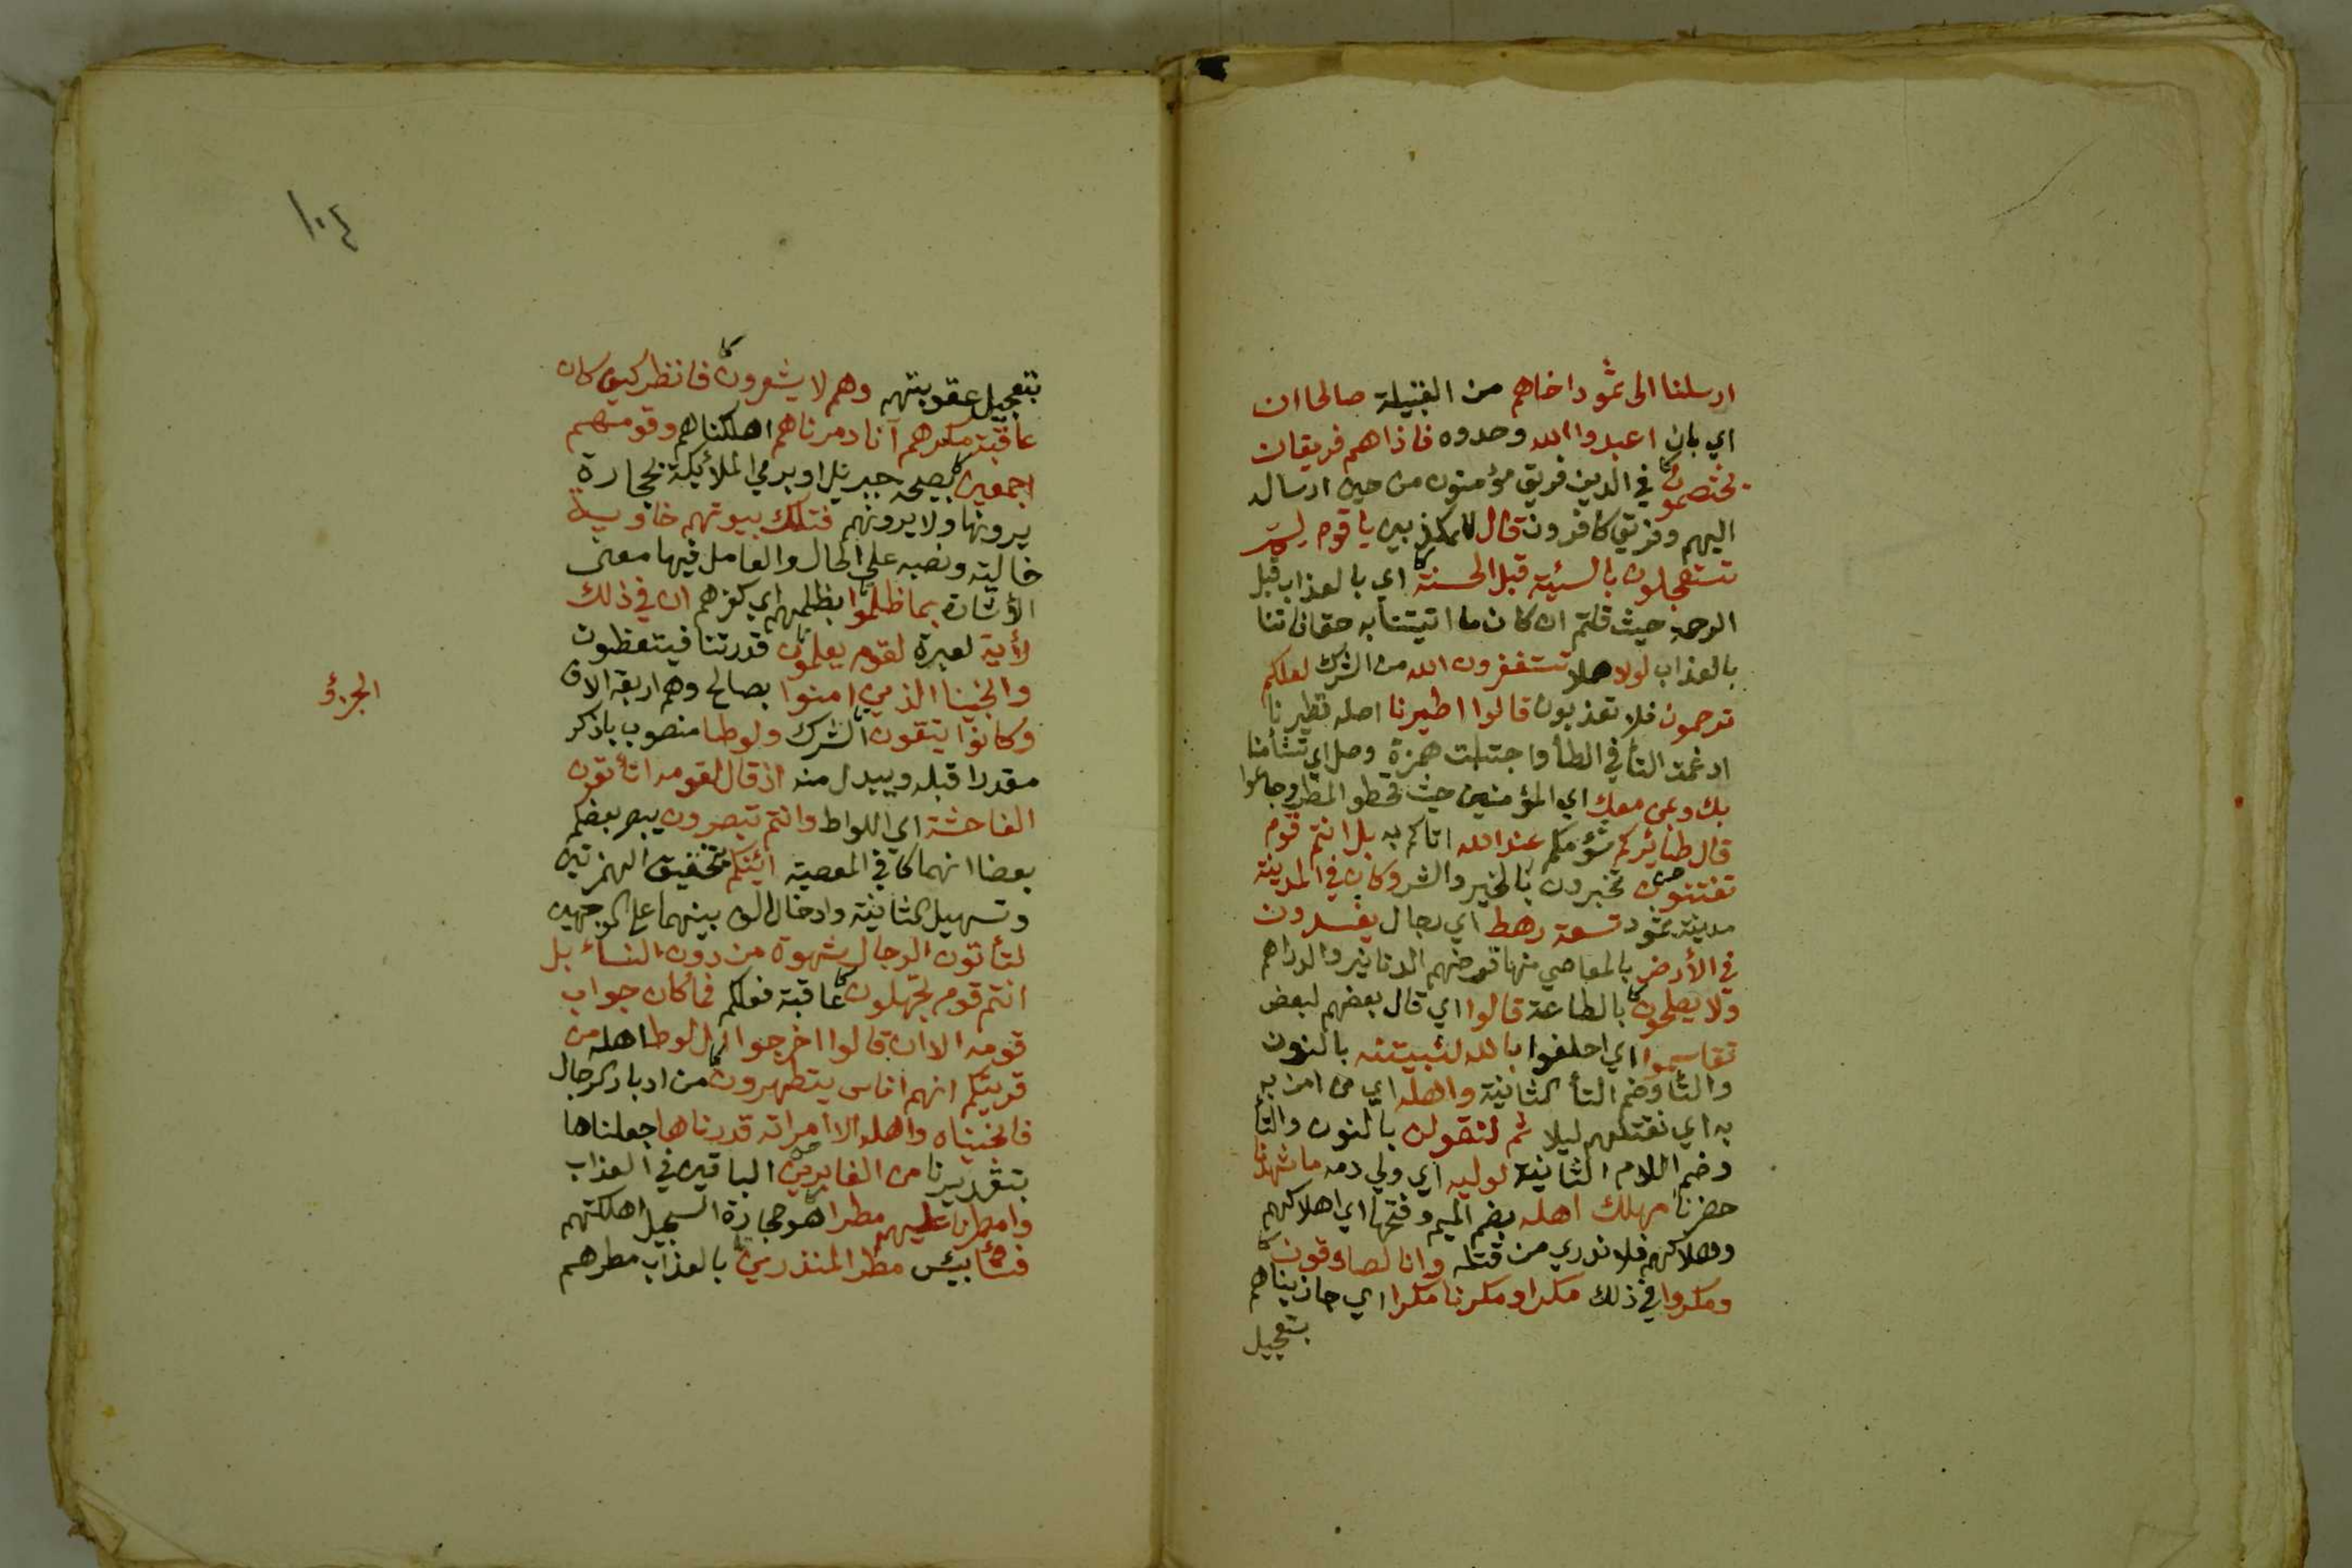 ارسلنا الى ثمود اخاهم من القبيلة صالحا ان
اي بان اعبدوا الله وحدوه فاذا هم فريقان
يختصمون في الدين فريق مؤمنون من حين ارساله
اليهم وفريق كافرون قال للمكذبين يا قوم لم
تستعجلون بالسئية قبل الحسنة اي بالعذاب قبل
الرحمة حيث قلتم ان كان ما اتيتنا به حقا فاتنا
بالعذاب لولا هلا تستغفرون الله من الشرك لعلكم
ترحمون فلا تعذبون قالوا اطيرنا اصله تطيرنا
ادغمت التأ في الطأ واجتلبت همزة وصل اي تشأمنا
بك وبمن معك اي المؤمنين حيث قحطو المطر وجاعوا
قال طائركم شؤمكم عند الله اتاكم به بل انتم قوم
تفتنون تختبرون بالخير والشر وكان في المدينة
مدينة ثمود تسعة رهط اي رجال يفسدون
في الأرض بالمعاصي منها قرضهم الدنانير والدراهم
ولا يصلحون بالطاعة قالوا اي قال بعضهم لبعض
تقاسموا اي احلفوا بالله لنبيتنه بالنون
والتأ وضم التأ الثانية واهله اي من امن به
به اي نقتلهم ليلا ثم لنقولن بالنون والتأ
وضم اللام الثانية لوليه اي ولي دمه ما شهدنا
حضرنا مهلك اهله بضم الميم وفتحها اي اهلاكهم
وهلاكهم فلا ندري من قتله وانا لصادقون
ومكروا في ذلك مكرا ومكرنا مكرا اي جازيناهم
بتعجيل
١٠٤
بتعجيل عقوبتهم وهم لا يشعرون فانظر كيف كان
عاقبة مكرهم انا دمرناهم اهلكناهم وقومهم
اجمعين بصيحة جبريل او برمي الملائيكة بحجارة
يرونها ولا يرونهم فتلك بيوتهم خاوية
خالية ونصبه على الحال والعامل فيها معنى
الأشارة بما ظلموا بظلمهم اي كفرهم ان في ذلك
لأية لعبرة لقوم يعلمون قدرتنا فيتعظون
وانجينا الذين امنوا بصالح وهم اربعة الاف
وكانوا يتقون الشرك ولوطا منصوب باذكر
مقدرا قبله ويبدل منه اذ قال لقومه اتأتون
الفاحشة اي اللواط وانتم تبصرون يبصر بعضكم
بعضا انهماكا في المعصية ائينكم بتحقيق الهمزتين
وتسهيل الثانية وادخال الف بينهما على الوجهين
لتأتون الرجال شهوة من دون النساء بل
انتم قوم تجهلون عاقبة فعلكم فما كان جواب
قومه الا ان قالوا اخرجوا ال لوط اهله من
قريتكم انهم اناس يتطهرون من ادبار الرجال
فانجيناه واهله الا امراته قدرناها جعلناها
بتقديرنا من الغابرين الباقين في العذاب
وامطرنا عليهم مطرا هو حجارة السجيل اهلكتهم
فسأ بيئس مطر المنذرين بالعذاب مطرهم
الجزؤ